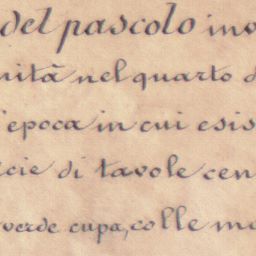 del pascolo ino
nità nel quarto d
'epoca in cui esis
cie di tavole cen
verde cupa, colle mo